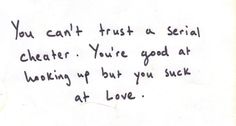 You can't trust a serial
cheater. You're good at
hooking up but you suck
at Love.